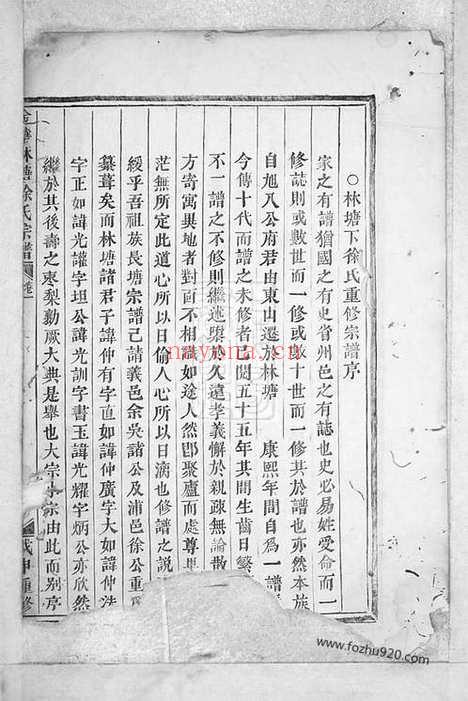 ○林塘下徐氏重修宗譜序
家之有譜猶國之有史省州邑之有誌也史必易姓受命而一
修誌則或數世而一修或數十世而一修其於譜也亦然本族
自旭八公府君由東山遷於林塘 康熙年間自爲一譜
今傳十代而譜之未修者已閱五十五年其間生齒日繁
不一譜之不修則繼述興於久遠孝義懈於親疎無論散
方寄寓異地者對面不相識如途人然卽聚廬而處尊卑
茫無所定此道心所以日偷人心所以日漓也修譜之説
緩乎吾祖族長塘宗譜己請義邑余吳諸公及浦邑徐公重
纂葺矣而林塘諸君子諱仲有字直如諱仲廣字大如諱仲法
字正如諱光讙字坦公諱光訓字書玉諱光耀字炳公亦欣然
繼於其後壽之棗梨勷厥大典是舉也大宗小宗由此而別序
林塘徐氏宗譜
戊申重修
nayona.cn
www.fozhu920.com